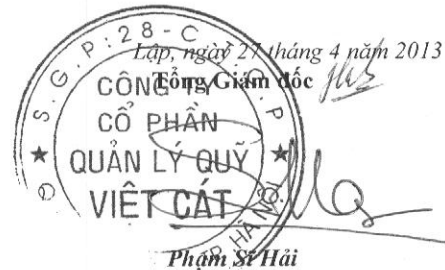 Lập, ngày 27 tháng 4 năm 2013
Tổng Giám đốc
S.G.P:28-C.
CÔNG TY
CỔ PHẦN
QUẢN LÝ QUỸ
VIỆT CÁT
HÀ NỘI
Phạm Sĩ Hải